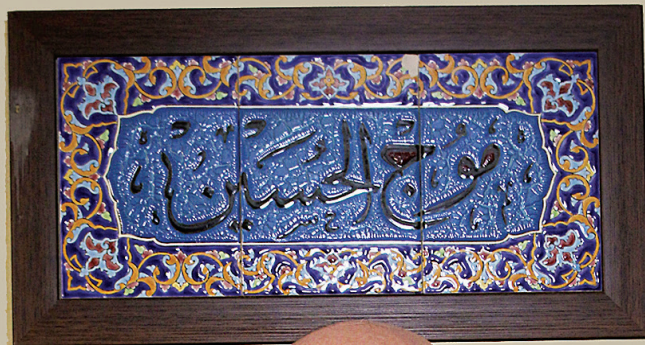 موج الحسین